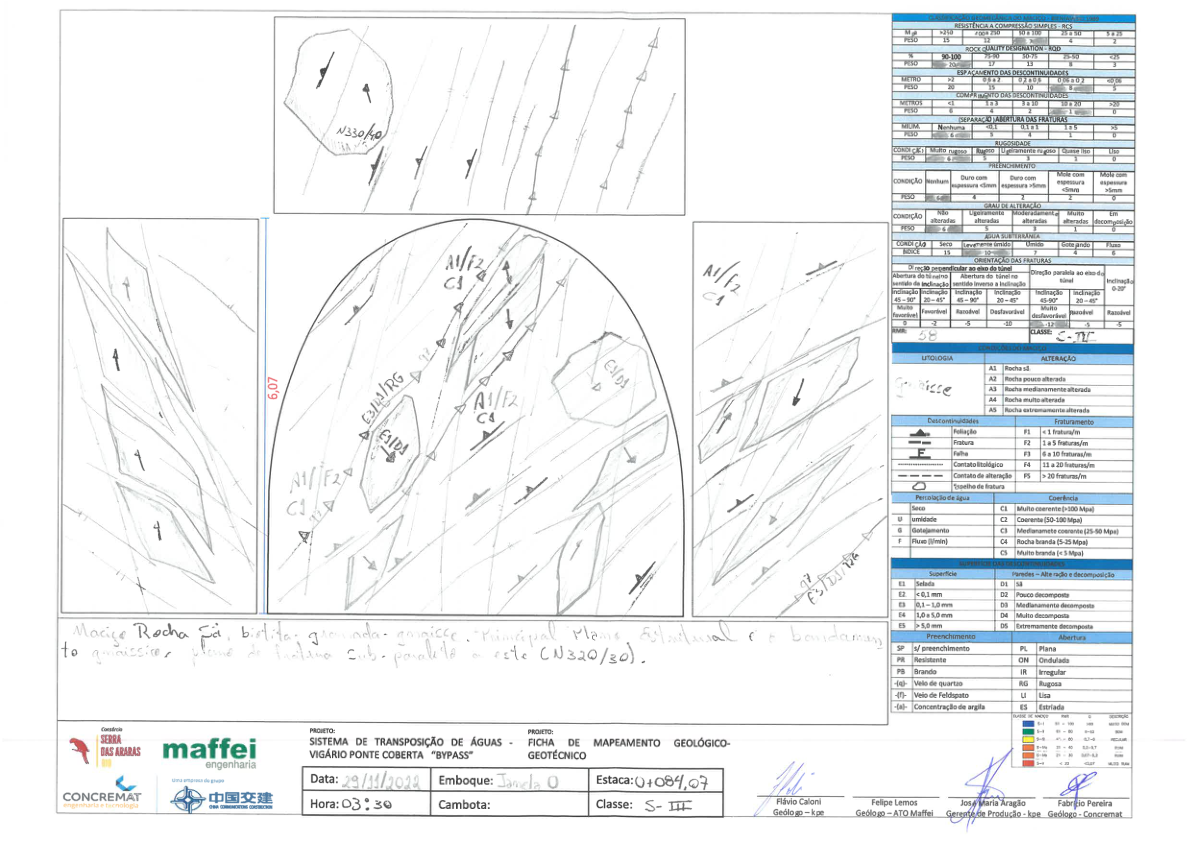 N330/40
A1/F2
C1
E3/D1/RG
E1/D1
A1/F2
E1/D1
A1/F2
C1
A1/F2
C1
6,07
Maciço Rocha Sã, biotita granada gnaisse. Principal Plano Estrutural é o bandamen
to gnáissico, plano de fratura sub-paralelo a este (N320/30).
RESISTÊNCIA A COMPRESSÃO SIMPLES - RCS
>250 50 a 100 25 a 50 5 a 25
PESO 15 12 4 2
ROCK QUALITY DESIGNATION - RQD
% 90-100 75-90 50-75 25-50 <25
PESO 20 17 13 8 3
ESPAÇAMENTO DAS DESCONTINUIDADES
METRO >2 0,6 a 2 0,2 a 0,6 0,06 a 0,2 <0,06
PESO 20 15 10 8 5
COMPRIMENTO DAS DESCONTINUIDADES
METROS <1 1 a 3 3 a 10 10 a 20 >20
PESO 6 4 2 1 0
(SEPARAÇÃO) ABERTURA DAS FRATURAS
MILIM. Nenhuma <0,1 0,1 a 1 1 a 5 >5
PESO 6 5 4 1 0
RUGOSIDADE
CONDIÇÃO Muito rugoso Rugoso Ligeiramente rugoso Quase liso Liso
PESO 6 5 3 1 0
PREENCHIMENTO
CONDIÇÃO Nenhum Duro com espessura <5mm Duro com espessura >5mm Mole com espessura <5mm Mole com espessura >5mm
PESO 6 4 2 2 0
GRAU DE ALTERAÇÃO
CONDIÇÃO Não alteradas Ligeiramente alteradas Moderadamente alteradas Muito alteradas Em decomposição
PESO 6 5 3 1 0
ÁGUA SUBTERRÂNEA
CONDIÇÃO Seco Levemente úmido Úmido Gotejando Fluxo
ÍNDICE 15 10 7 4 6
ORIENTAÇÃO DAS FRATURAS
Direção perpendicular ao eixo do túnel Direção paralela ao eixo do túnel Inclinação 0-20°
Abertura do túnel no sentido da inclinação Abertura do túnel no sentido inverso a inclinação
Inclinação 45 – 90° Inclinação 20 – 45° Inclinação 45 – 90° Inclinação 20 – 45° Inclinação 45-90° Inclinação 20 – 45°
Muito favorável Favorável Razoável Desfavorável Muito desfavorável Razoável Razoável
0 -2 -5 -10 -12 -5 -5
RMR: 58 CLASSE: S-III
LITOLOGIA ALTERAÇÃO
Gnaisse
A1 Rocha sã
A2 Rocha pouco alterada
A3 Rocha medianamente alterada
A4 Rocha muito alterada
A5 Rocha extremamente alterada
Descontinuidades Fraturamento
Foliação F1 < 1 fratura/m
Fratura F2 1 a 5 fraturas/m
F Falha F3 6 a 10 fraturas/m
Contato litológico F4 11 a 20 fraturas/m
Contato de alteração F5 > 20 fraturas/m
Espelho de fratura
Percolação de água Coerência
Seco C1 Muito coerente (>100 Mpa)
U umidade C2 Coerente (50-100 Mpa)
G Gotejamento C3 Medianamente coerente (25-50 Mpa)
F Fluxo (l/min) C4 Rocha branda (5-25 Mpa)
C5 Muito branda (< 5 Mpa)
Superfície Paredes – Alteração e decomposição
E1 Selada D1 Sã
E2 < 0,1 mm D2 Pouco decomposta
E3 0,1 – 1,0 mm D3 Medianamente decomposta
E4 1,0 a 5,0 mm D4 Muito decomposta
E5 > 5,0 mm D5 Extremamente decomposta
Preenchimento Abertura
SP s/ preenchimento PL Plana
PR Resistente ON Ondulada
PB Brando IR Irregular
-(q)- Veio de quartzo RG Rugosa
-(f)- Veio de Feldspato LI Lisa
-(a)- Concentração de argila ES Estriada
Consórcio
SERRA
DAS ARARAS
maffei
engenharia
CONCREMAT
engenharia e tecnologia
Uma empresa do grupo
中国交建
CHINA COMMUNICATIONS CONSTRUCTION
PROJETO:
SISTEMA DE TRANSPOSIÇÃO DE ÁGUAS -
VIGÁRIO PONTE COBERTA "BYPASS"
PROJETO:
FICHA DE MAPEAMENTO GEOLÓGICO-
GEOTÉCNICO
Data: 29/11/2022 Emboque: Janela O Estaca: 0+084,07
Hora: 03:30 Cambota: Classe: S-III
Flávio Caloni
Geólogo – kpe
Felipe Lemos
Geólogo – ATO Maffei
José Maria Aragão
Gerente de Produção - kpe
Fabrício Pereira
Geólogo - Concremat